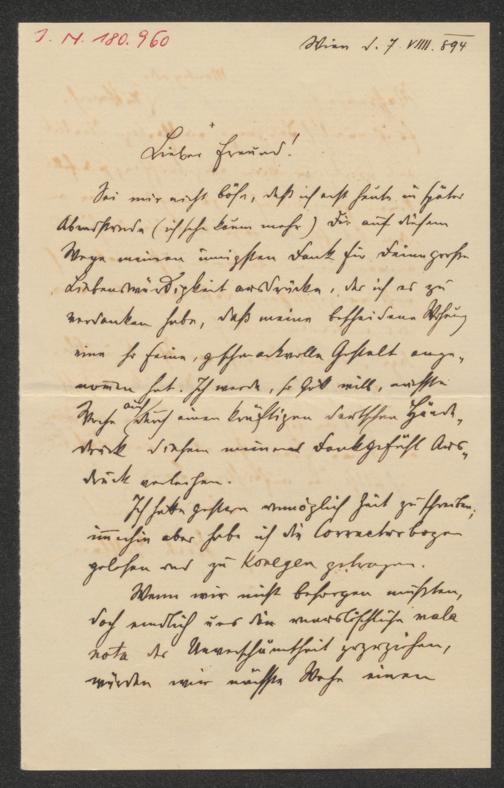 J. N. 180.960
Wien d. 7. VIIII. 894
Lieber Freund!
Sei mir nicht böse, daß ich erst heute in später
Abendstunde (ich sehe kaum mehr) Dir auf diesem
Wege meinen innigsten Dank für Deine große
Liebenswürdigkeit ausdrücke, der ich es zu
verdanken habe, daß meine bescheidene
eine so feine, geschmackvolle Gestalt ange-
nommen hat. Ich werde, so Gott will, nächste
Woche auch durch einen kräftigen deutschen Hände-
druck diesem meinem Dankgefühl Aus-
druck verleihen.
Ich hatte gestern unmöglich Zeit zu schreiben;
immerhin aber habe ich die Correcturbogen
gelesen und zu Konegen getragen.
Wenn wir nicht besorgen müßten,
doch endlich uns die mala
nota der Unverschämtheit zuzuziehen,
würden wir nächste Woche einen